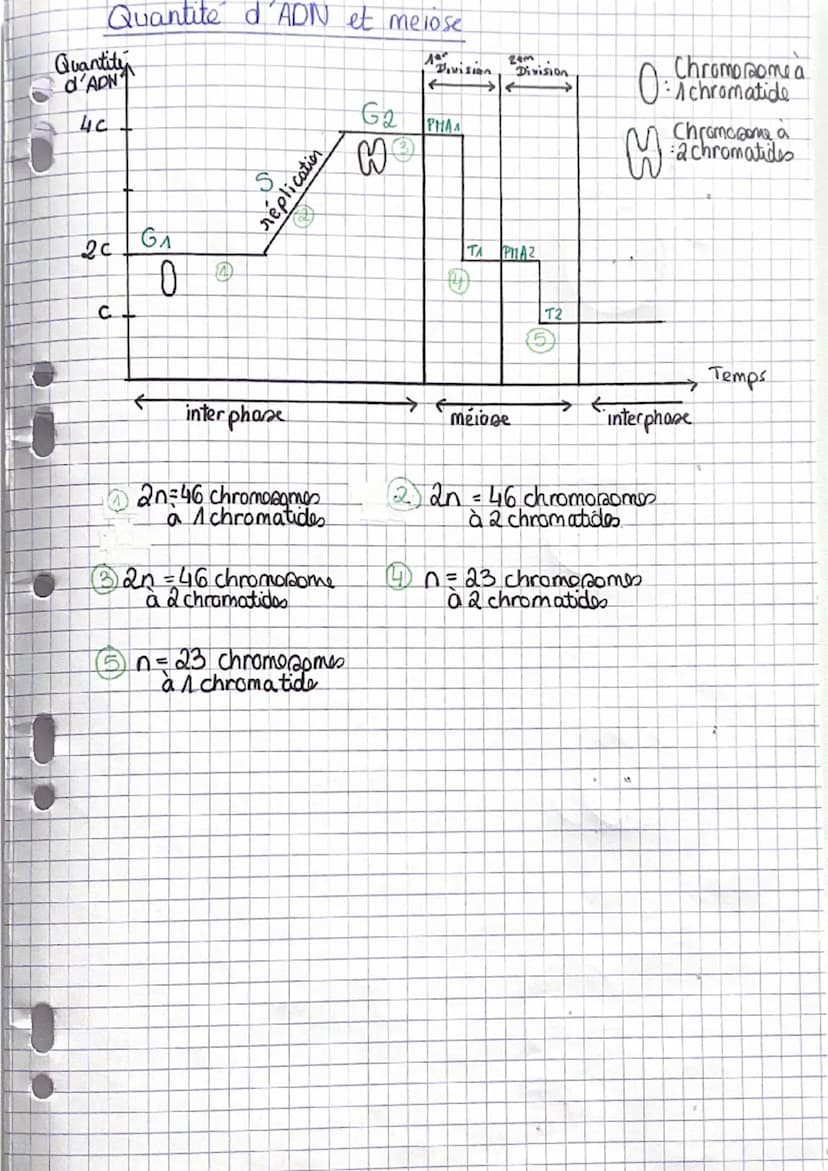 Quantité d'ADN et meiose
Quantité
d'ADN
1er
Division
2em
Division
Chromosome à
: 1 chromatide
Chromosome à
: 2 chromatides
4c
G2
PMA1
3
S
réplication
2
2c
G1
1
T1
PMA2
4
c
T2
5
Temps
interphase
méiose
interphase
1 2n=46 chromosomes
à 1 chromatides
2 2n = 46 chromosomes
à 2 chromatides
3 2n = 46 chromosome
à 2 chromatides
4 n = 23 chromosomes
à 2 chromatides
5 n = 23 chromosomes
à 1 chromatide